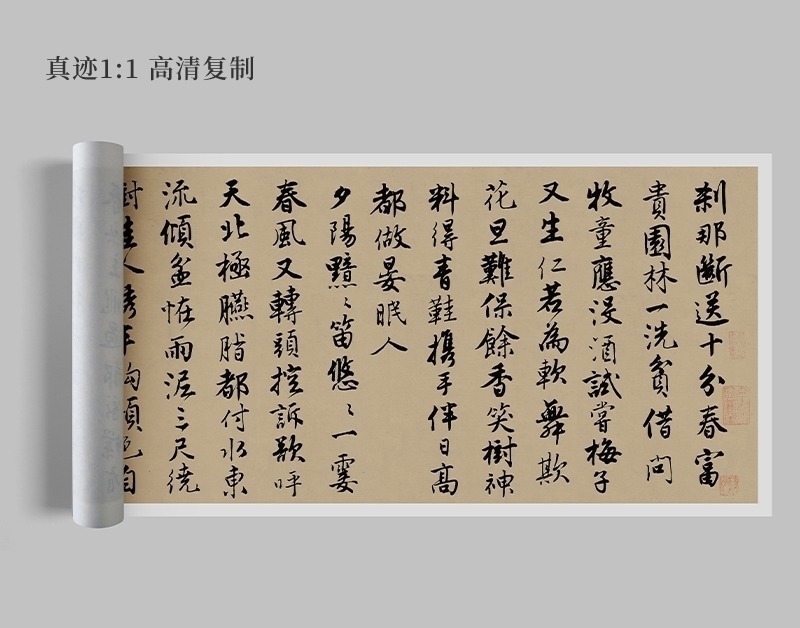 真迹1:1 高清复制
刹那斷送十分春富
貴園林一洗貧借問
牧童應没酒試嘗梅子
又生仁若為軟舞欺
花旦難保餘香笑樹神
料得青鞋携手伴日高
都做晏眠人
夕陽黯〻笛悠〻一霎
春風又轉頭控訴欲呼
天北極臙脂都付水東
流傾盆怪雨泥三尺繞